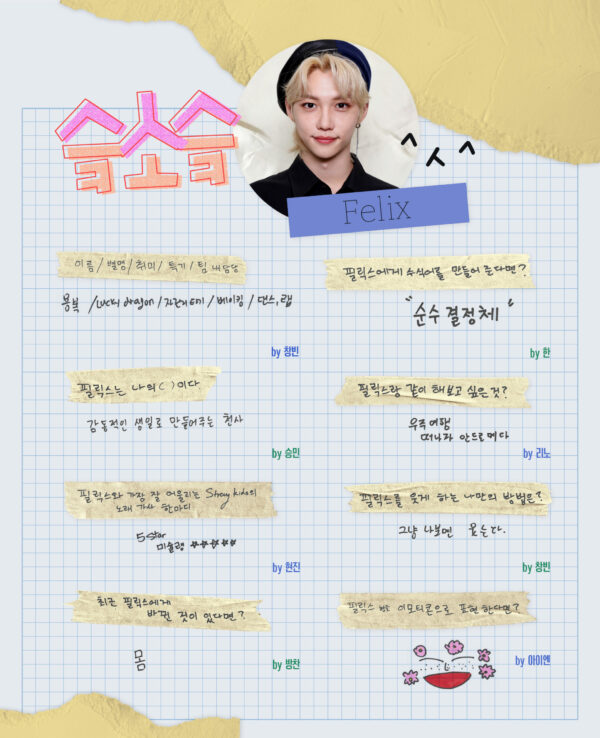 슼소슼
^ㅅ^
Felix
이름/별명/취미/특기/팀 내 담당
용복 /Lucki dragon/자전거 타기/베이킹/댄스, 랩
by 창빈
필릭스에게 수식어를 만들어 준다면?
"순수 결정체"
by 한
필릭스는 나의( )이다
감동적인 생일로 만들어주는 천사
by 승민
필릭스랑 같이 해보고 싶은 것?
우주여행
떠나자 안드로메다
by 리노
필릭스와 가장 잘 어울리는 Stray kids의
노래 가사 한마디
5-star
미슐랭 ☆☆☆☆☆
by 현진
필릭스를 웃게 하는 나만의 방법은?
그냥 나보면 웃는다.
by 창빈
최근 필릭스에게
바뀐 것이 있다면?
몸
by 방찬
필릭스 이모티콘으로 표현한다면?
by 아이엔